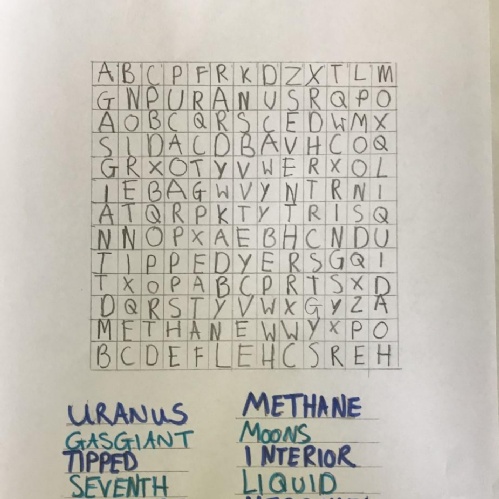 A B C P F R K D Z X T L M
G N P U R A N U S R Q P O
A O B C Q R S C E D W M X
S I D A C D B A V H C O Q
G R X O T Y V W E R X O L
I E B A G W V Y N T R N I
A T Q R P K T Y T R I S Q
N N O P X A E B H C N D U
T I P P E D Y E R S G Q I
T X O P A B C P R T S X D
D Q R S T Y V W X G Y Z A
M E T H A N E W W Y X P O
B C D E F L E H C S R E H
URANUS METHANE
GASGIANT MOONS
TIPPED INTERIOR
SEVENTH LIQUID